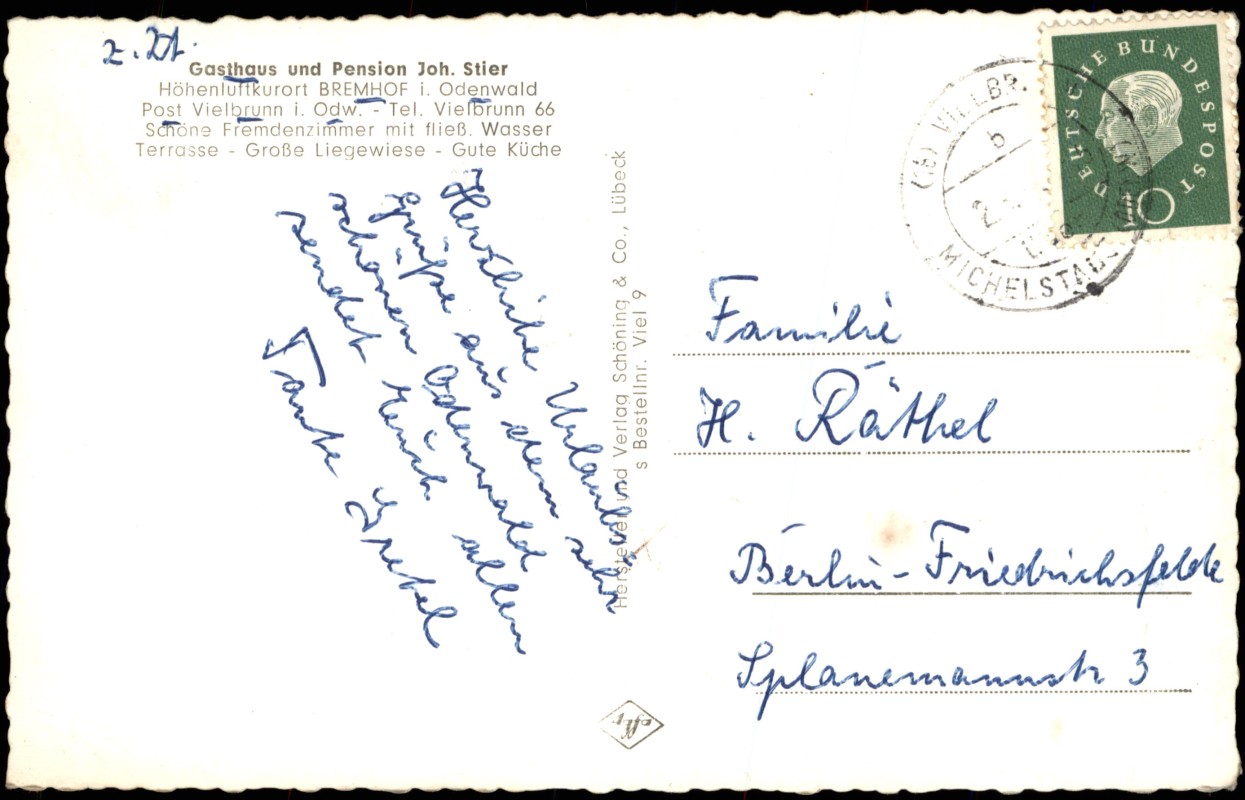 z. Zt.
Gasthaus und Pension Joh. Stier
Höhenluftkurort BREMHOF i. Odenwald
Post Vielbrunn i. Odw. - Tel. Vielbrunn 66
Schöne Fremdenzimmer mit fließ. Wasser
Terrasse - Große Liegewiese - Gute Küche
Herzliche Urlaubs-
grüße aus dem sehr
schönen Odenwald
sendet Euch allen
Tante Gretel
Hersteller und Verlag Schöning & Co., Lübeck
s Bestellnr. Viel 9
DEUTSCHE BUNDESPOST
10
(16) VIELBR
b
MICHELSTADT
Familie
H. Räthel
Berlin-Friedrichsfelde
Splanemannstr 3